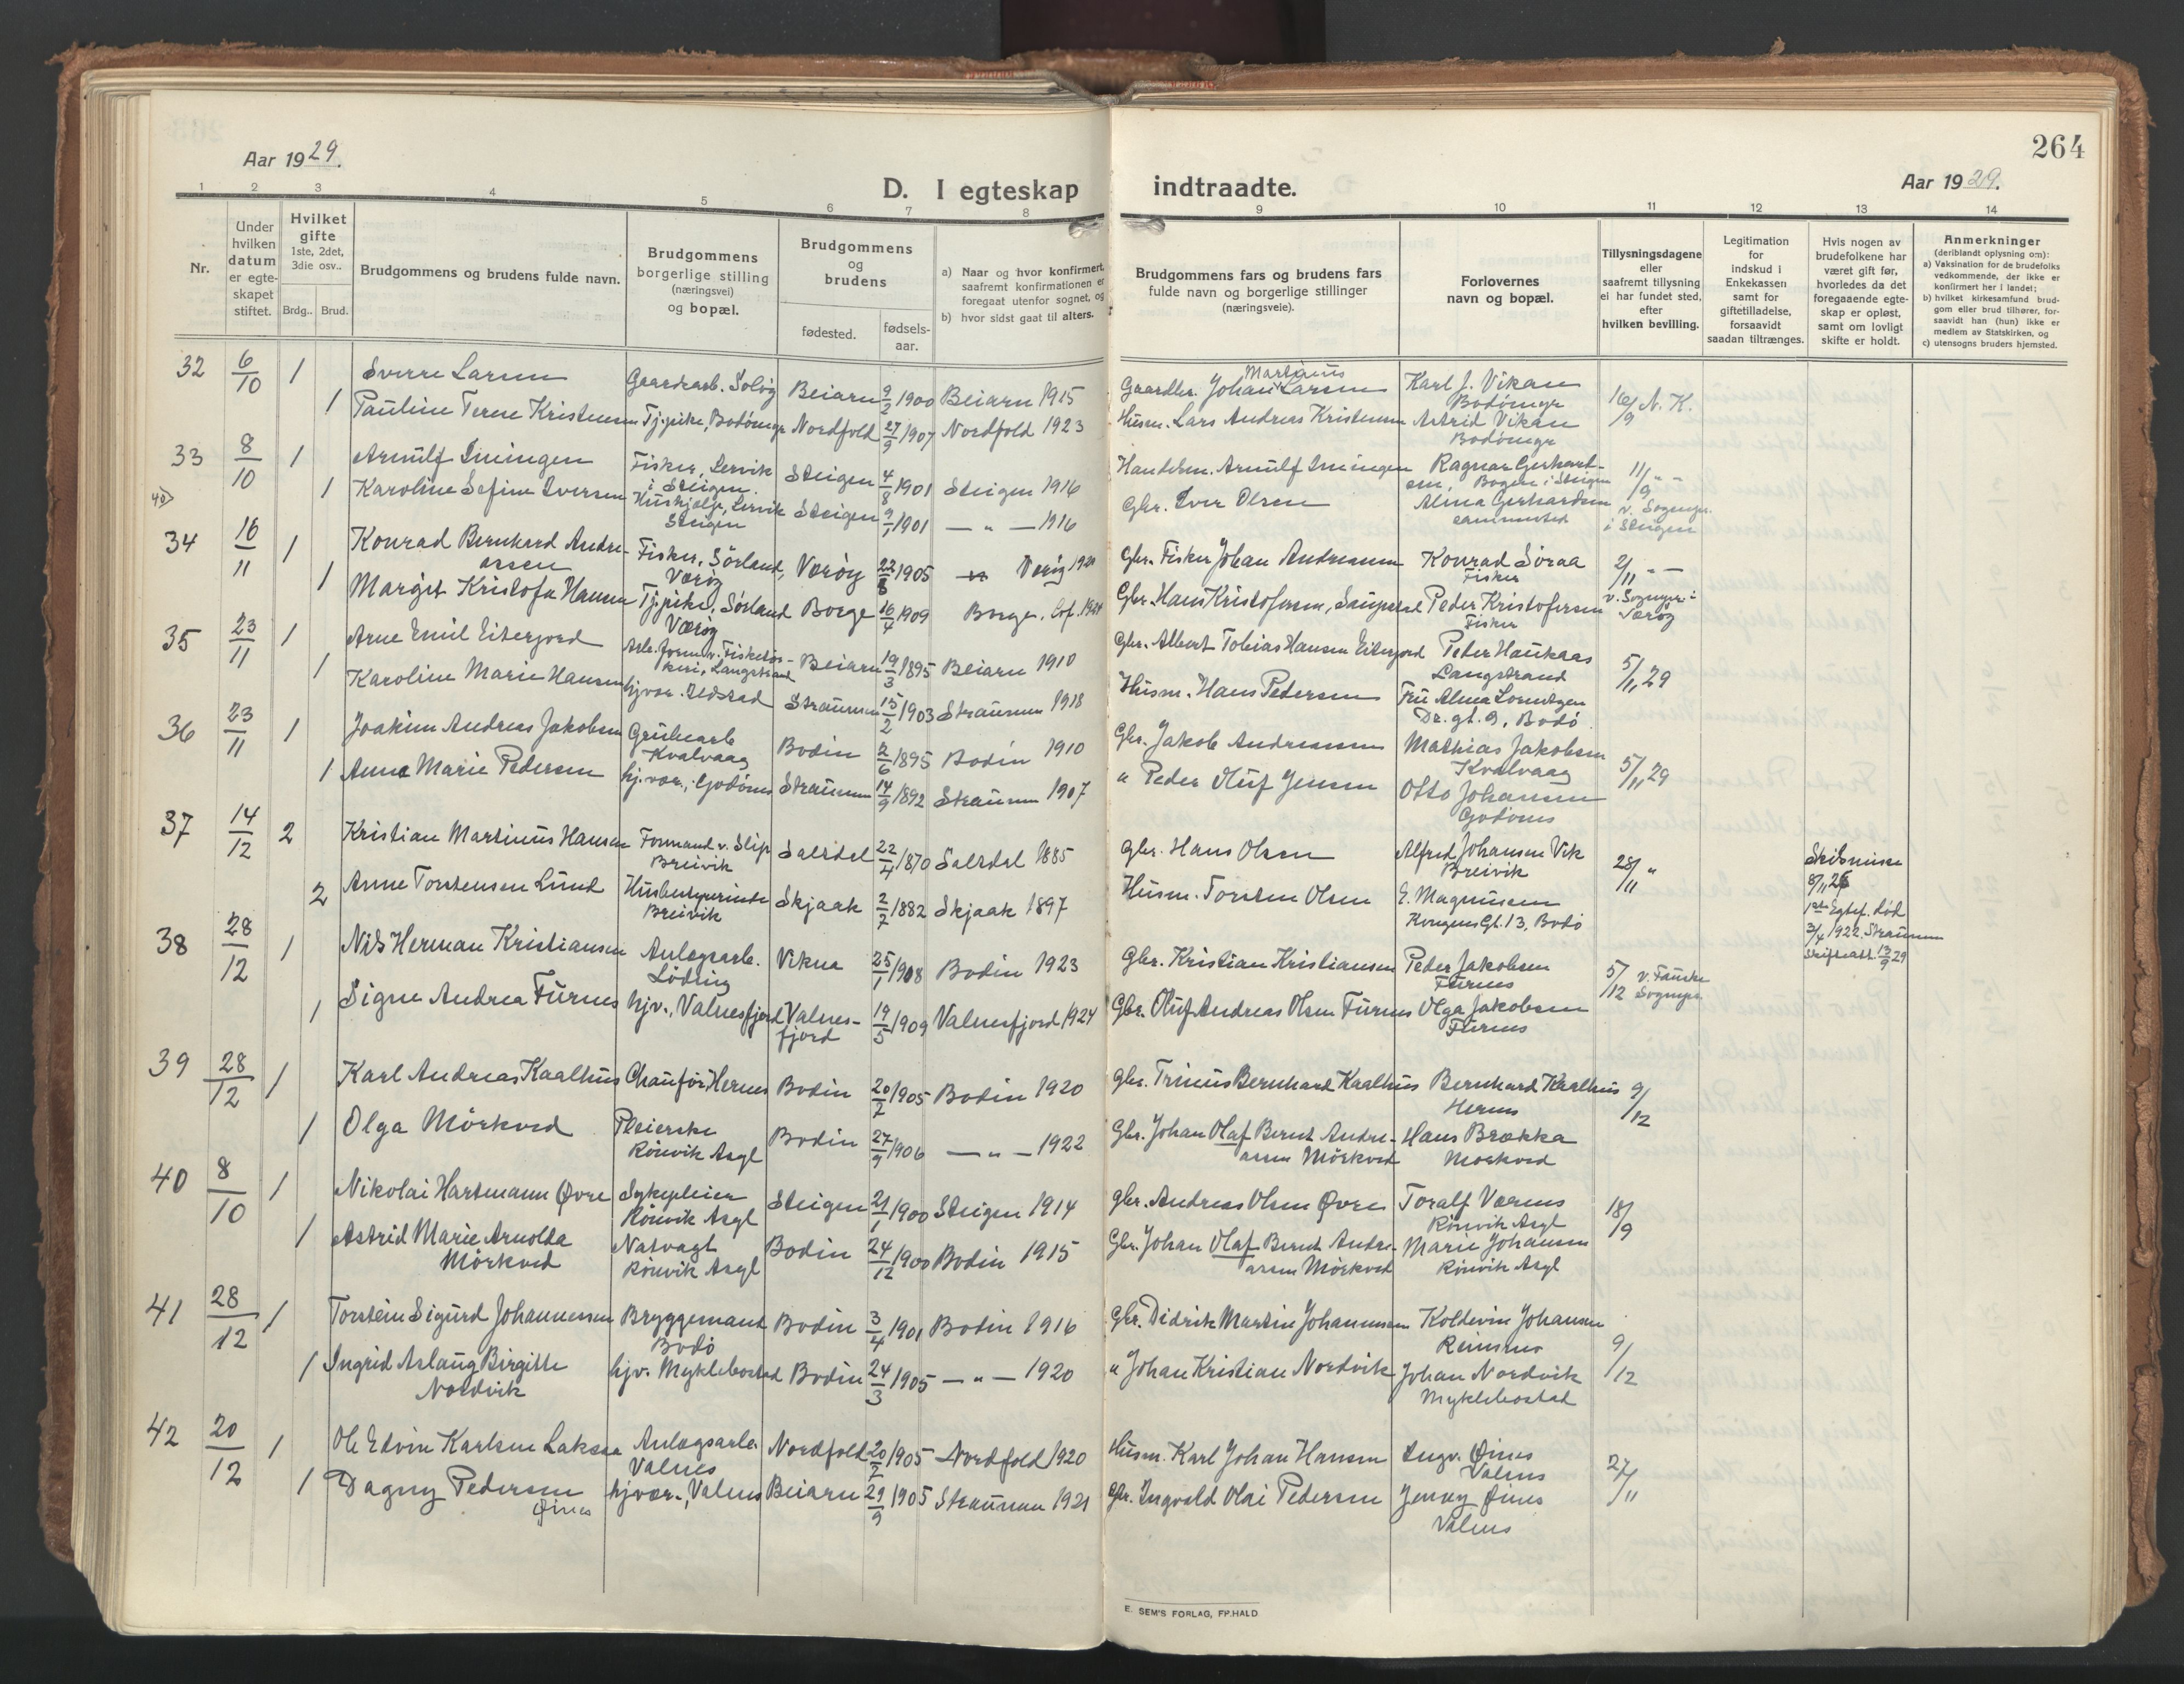 264
Aar 1929.
D. I egteskap indtraadte.
Aar 1929.
1 2 3 4 5 6 7 8 9 10 11 12 13 14
Nr.
Under
hvilken
datum
er egte-
skapet
stiftet.
Hvilket
gifte
1ste, 2det,
3die osv..
Brdg.. Brud.
Brudgommens og brudens fulde navn.
Brudgommens
borgerlige stilling
(næringsvei)
og bopæl.
Brudgommens
og
brudens
fødested.
fødsels-
aar.
a) Naar og hvor konfirmert,
saafremt konfirmationen er
foregaat utenfor sognet, og
b) hvor sidst gaat til alters.
Brudgommens fars og brudens fars
fulde navn og borgerlige stillinger
(næringsveie).
Forlovernes
navn og bopæl.
Tillysningsdagene
eller
saafremt tillysning
ei har fundet sted,
efter
hvilken bevilling.
Legitimation
for
indskud i
Enkekassen
samt for
giftetilladelse,
forsaavidt
saadan tiltrænges.
Hvis nogen av
brudefolkene har
været gift før,
hvorledes da det
foregaaende egte-
skap er opløst,
samt om lovligt
skifte er holdt.
Anmerkninger
(deriblandt oplysning om):
a) Vaksination for de brudefolks
vedkommende, der ikke er
konfirmert her i landet;
b) hvilket kirkesamfund brud-
gom eller brud tilhører, for-
saavidt han (hun) ikke er
medlem av Statskirken, og
c) utensogns bruders hjemsted.
32 6/10 1 Sverre Larsen Gaardsarb. Solvig Beiarn 9/2 1900 Beiarn 1915 Gaardbr. Johan Martinus Larsen Karl J. Vikan
Bodømgr 16/9 N. K.
1 Pauline Terne Kristensen Tj.pike, Bodømgr Nordfold 27/9 1907 Nordfold 1923 Husm. Lars Andreas Kristensen Astrid Vikan
Bodømgr
33 8/10 1 Arnulf Iningen Fisker, Lervik
i Steigen. Steigen 4/8 1901 Steigen 1916 Handelsm. Arnulf Iningen Ragnar Gerhard-
sen, Bogen i Steigen 11/9 " -
1 Karoline Sefine Iversen Hushjelp, Lervik
Steigen Steigen 9/1 1901 - " - 1916 Gbr. Iver Olsen Alma Gerhardsen
sammested v. Sognepr.
i Steigen
34 16/11 1 Konrad Bernhard Andre-
assen Fisker, Sörland,
Værøy Værøy 22/8 1905 Værøy 1920 Gbr. Fisker Johan Andreassen Konrad Soraa
Fisker 2/11 " -
1 Margit Kristofa Hansen Tj.pike, Sørland
Værøy Borge 16/4 1909 Borge, Lof. 1924 Gbr. Hans Kristofersen, Peder Kristofersen
Fisker v. Sognepr. i
Værøy
35 23/11 1 Arne Emil Eiterjord Arb. form. v. Fisketør-
keri, Langstrand Beiarn 19/3 1895 Beiarn 1910 Gbr. Albert Tobias Hansen Eiterjord Peter Haukaas
Langstrand 5/11 29
1 Karoline Marie Hansen hjvær. Ildstad Straumen 15/2 1903 Straumen 1918 Husm. Hans Pedersen Fru Alma Lorentzen
Dr. gt. 9, Bodø
36 23/11 1 Joakim Andreas Jakobsen Grubearb
Kvalvaag Bodin 2/6 1895 Bodin 1910 Gbr. Jakob Andreassen Mathias Jakobsen
Kvalvaag 5/11 29
1 Anna Marie Pedersen hj.vær., Godønes Straumen 14/9 1892 Straumen 1907 " Peder Oluf Jensen Otto Johansen
Godønes
37 14/12 2 Kristian Martinus Hansen Formand v. Slip
Breivik Saltdal 22/4 1870 Saltdal 1885 Gbr. Hans Olsen Alfred Johansen Vik
Breivik 28/11 " Skilsmisse
8/11 26
2 Anne Torstensen Lund Husbestyrerinde
Breivik Skjaak 2/2 1882 Skjaak 1897 Husm. Torsten Olsen E. Magnussen
Kongens Gt. 13, Bodø
1ste Egtef. død
3/4 1922. Straumen
Skifteatt. 13/9 29
38 28/12 1 Nils Herman Kristiansen Anlægsarb.
Løding Vikna 25/1 1908 Bodin 1923 Gbr. Kristian Kristiansen Peder Jakobsen
Furnes 5/12 v. Fauske
Sognepr.
1 Signe Andrea Furnes hjv., Valnesfjord Valnes-
fjord 19/5 1909 Valnesfjord 1924 Gbr. Oluf Andreas Olsen Furnes Olga Jakobsen
Furnes
39 28/12 1 Karl Andreas Kaalhus Chauför, Hernes Bodin 20/2 1905 Bodin 1920 Gbr. Trinus Bernhard Kaalhus Bernhard Kaalhus
Hernes 9/12
1 Olga Mörkved Pleierske
Rönvik Asyl Bodin 27/9 1906 - " - 1922 Gbr. Johan Olaf Bernt Andre-
assen Mörkved Hans Brækka
Mørkved
40 8/10 1 Nikolai Hartmann Øvre Sykepleier
Rönvik Asyl Steigen 21/1 1900 Steigen 1914 Gbr. Andreas Olsen Øvre Toralf Værnes
Rönvik Asyl 18/9
1 Astrid Marie Arnolda
Mörkved Natvagt
Rönvik Asyl Bodin 24/12 1900 Bodin 1915 Gbr. Johan Olaf Bernt Andre-
assen Mörkved Marie Johansen
Rönvik Asyl
41 28/12 1 Torstein Sigurd Johannessen Bryggemand
Bodö Bodin 3/4 1901 Bodin 1916 Gbr. Didrik Martin Johannessen Koldevin Johansen
9/12
1 Ingrid Aslaug Birgitte
Nordvik hjv. Myklebostad Bodin 24/3 1905 - " - 1920 " Johan Kristian Nordvik Johan Nordvik
Myklebostad
42 20/12 1 Ole Edvin Karlsen Laksaa Anlægsarb.
Valnes Nordfold 20/2 1905 Nordfold 1920 Husm. Karl Johan Hansen Ingv. Øines
Valnes 27/11
1 Dagny Pedersen
Øines hjvær., Valnes Beiarn 29/9 1905 Straumen 1921 Gbr. Ingvald Olai Pedersen Jenny Øines
Valnes
E. SEM'S FORLAG, FR.HALD